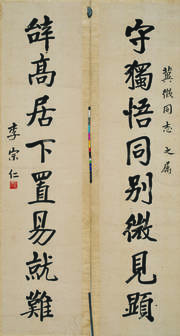 冀微同志之属
守獨悟同别微見顕
辞高居下置易就難
李宗仁